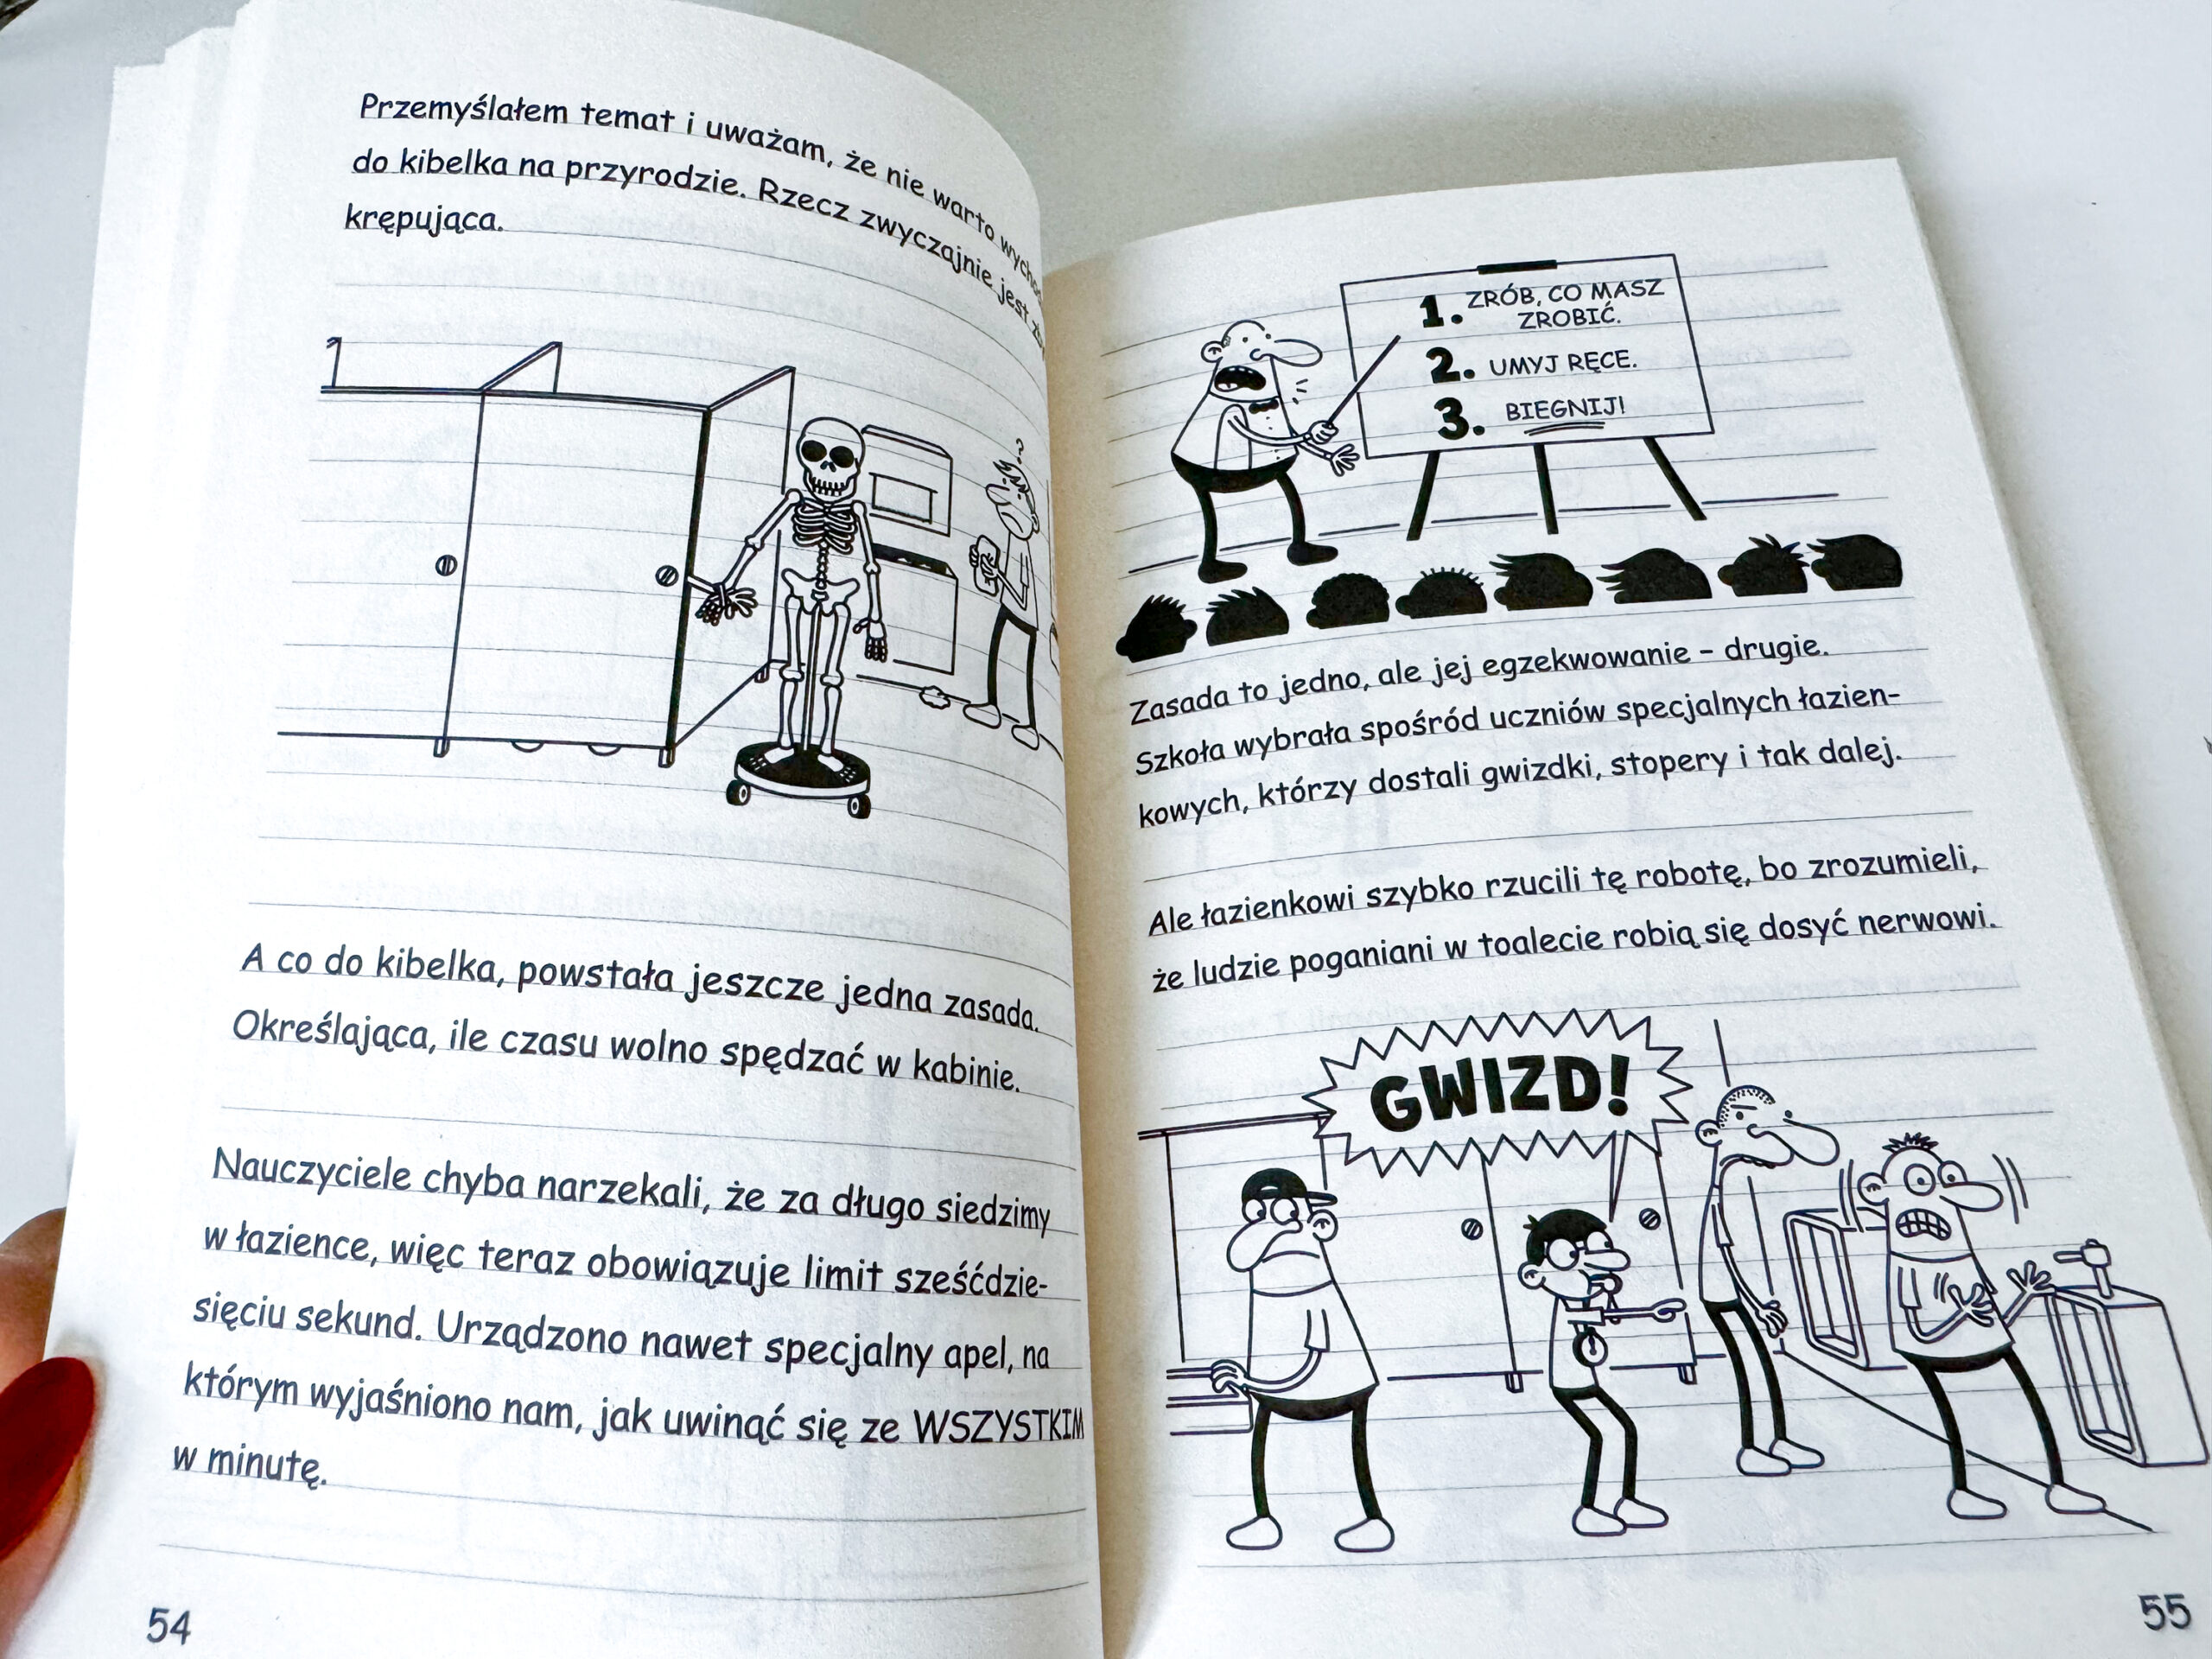 Przemyślałem temat i uważam, że nie warto
do kibelka na przyrodzie. Rzecz zwyczajnie jest
krępująca.
A co do kibelka, powstała jeszcze jedna zasada.
Określająca, ile czasu wolno spędzać w kabinie.
Nauczyciele chyba narzekali, że za długo siedzimy
w łazience, więc teraz obowiązuje limit sześćdzie-
sięciu sekund. Urządzono nawet specjalny apel, na
którym wyjaśniono nam, jak uwinąć się ze WSZYSTKIM
w minutę.
54
1. ZRÓB, CO MASZ
ZROBIĆ.
2. UMYJ RĘCE.
3. BIEGNIJ!
Zasada to jedno, ale jej egzekwowanie – drugie.
Szkoła wybrała spośród uczniów specjalnych łazien-
kowych, którzy dostali gwizdki, stopery i tak dalej.
Ale łazienkowi szybko rzucili tę robotę, bo zrozumieli,
że ludzie poganiani w toalecie robią się dosyć nerwowi.
GWIZD!
55